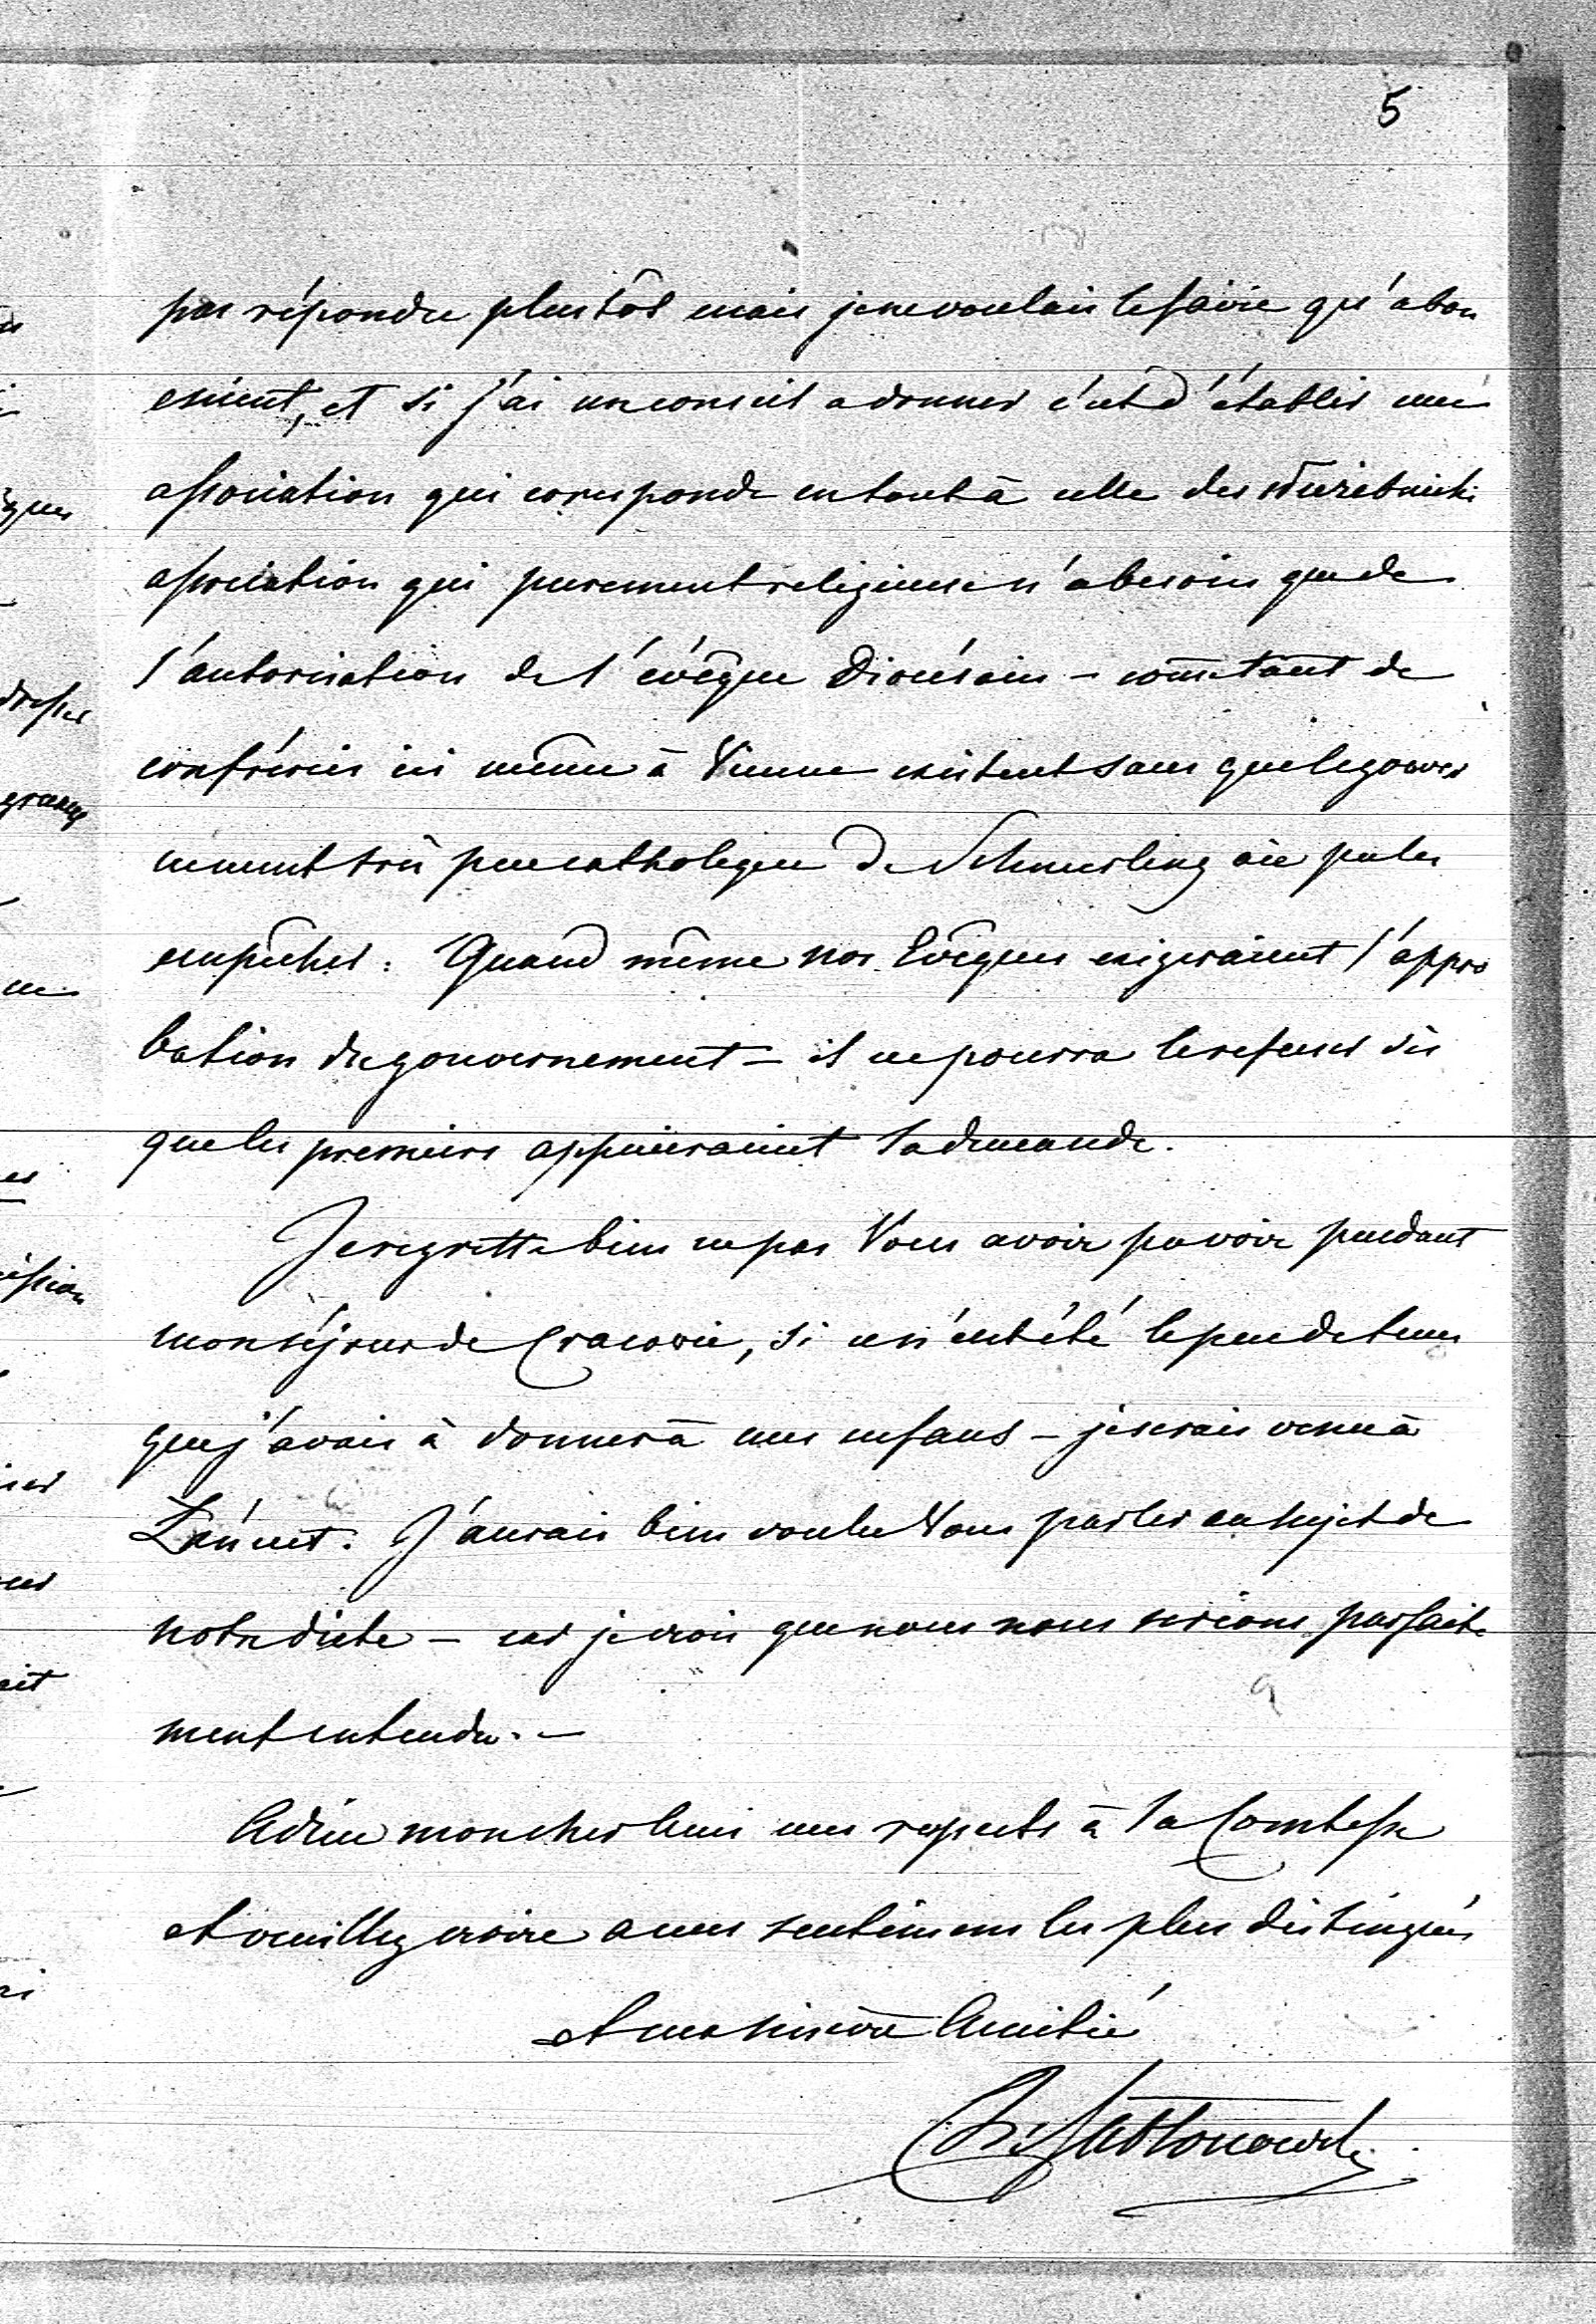 5
pas répondre plustôt mais je ne voulais le faire qu'a bon
esient, et si j'ai un conseil a donner c'est d'établir une
association qui coresponde en tout à celle des Wuieŕebnicki
association qui purement religieuse n'a besoin que de
l'autorisation de l'évêque Diocésain – comme tant de
confréries ici même à Vienne existent sans que le gouver
nement très peu catholique de Schmerling aie pu les
empêcher. Quand même nos Evêques exigeraient l'appro
bation du gouvernement – il ne pourra le refuser dès
que les premiers appuieraient la demande.
Je regrette bien ne pas Vous avoir pu voir pendant
mon séjour de Cracovie, si ce n'eut été le peu de tems
que j'avais à donner à mes enfans – je serais venu à
Łańcut. J'aurais bien voulu Vous parler au sujet de
notre diète – car je crois que nous nous serions parfaite
ment entendu. –
Adieu mon cher Ami mes respects à la Comtesse
et veuillez croire a mes sentimens les plus distingués
et ma sincère Amitié
Jabłonowski